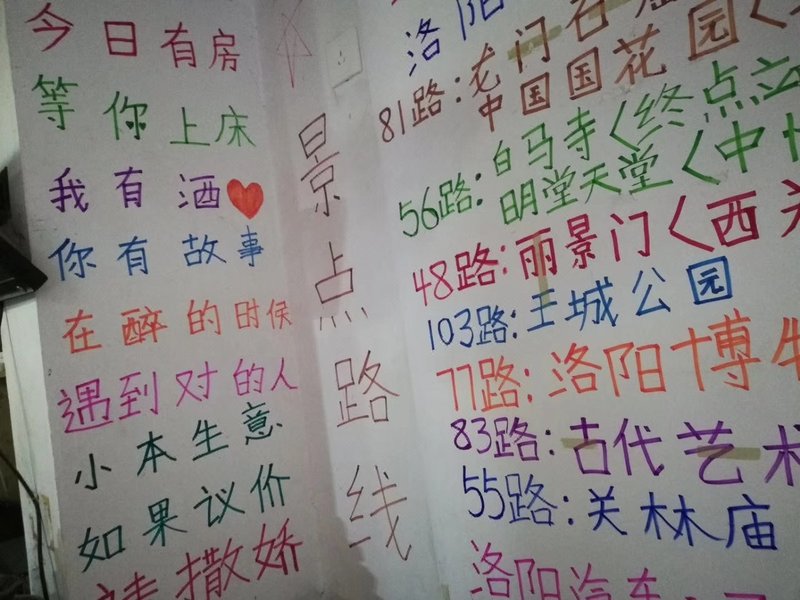 今日有房
等你上床
我有酒
你有故事
在醉的时候
遇到对的人
小本生意
如果议价
请撒娇
景点路线
洛阳
龙门石窟
81路:中国国花园<
56路:白马寺<终点
明堂天堂<中州
48路:丽景门<西关
103路:王城公园
77路:洛阳博
83路:古代艺术
55路:关林庙
洛阳汽车